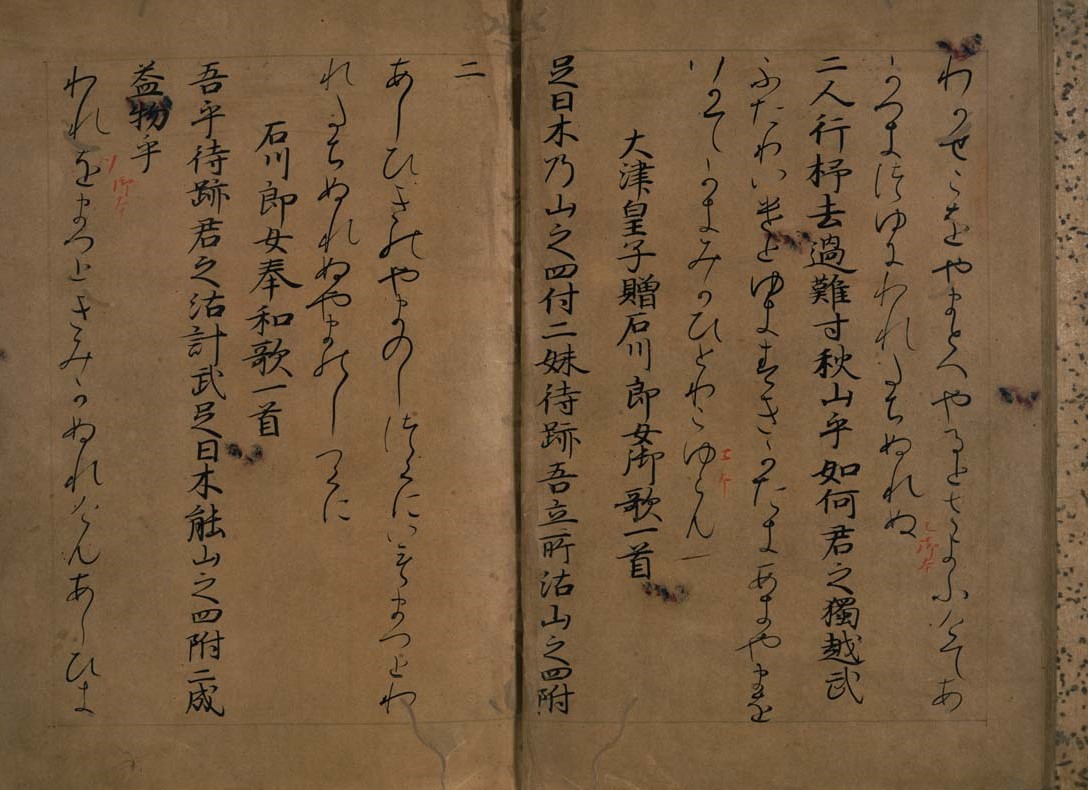 わかせこをやまとへやるとさよふけてあ
かつきつゆにわれたちぬれぬ
二人行杼去過難寸秋山乎如何君之獨越武
ふたりいけとゆきすきかたきあきやまを
いかてかきみかひとりこゆらん
大津皇子贈石川郎女御歌一首
足日木乃山之四付二妹待跡吾立所沾山之四附
二
あしひきのやまのしつくにいもまつとわ
れたちぬれぬやまのしつくに
石川郎女奉和歌一首
吾乎待跡君之沾計武足日木能山之四附二成
益物乎
われをまつときみかぬれけんあしひき